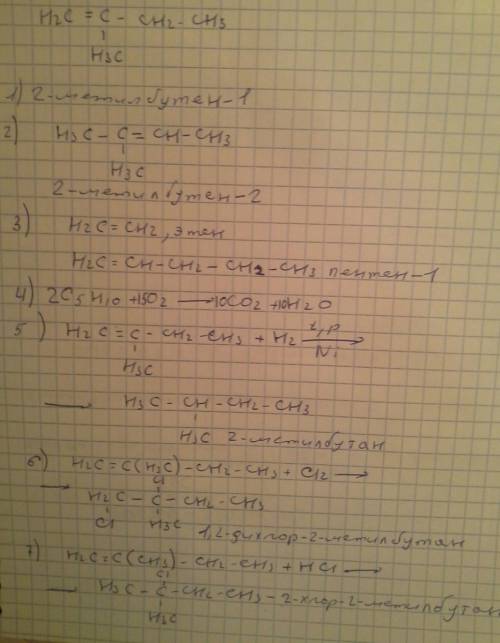 H2C = C - CH2 - CH3
H3C
1) 2-метилбутен-1
2) H3C - C = CH - CH3
H3C
2-метилбутен-2
3) H2C = CH2, этен
H2C = CH - CH2 - CH2 - CH3 пентен-1
4) 2C5H10 + 15O2 ⟶ 10CO2 + 10H2O
5) H2C = C - CH2 - CH3 + H2 t, p ⟶ Ni
H3C
⟶ H3C - CH - CH2 - CH3
H3C 2-метилбутан
6) H2C = C(H3C) - CH2 - CH3 + Cl2 ⟶
Cl
⟶ H2C - C - CH2 - CH3
Cl H3C 1,2-дихлор-2-метилбутан
7) H2C = C(CH3) - CH2 - CH3 + HCl ⟶
Cl
⟶ H3C - C - CH2 - CH3 - 2-хлор-2-метилбутан
H3C